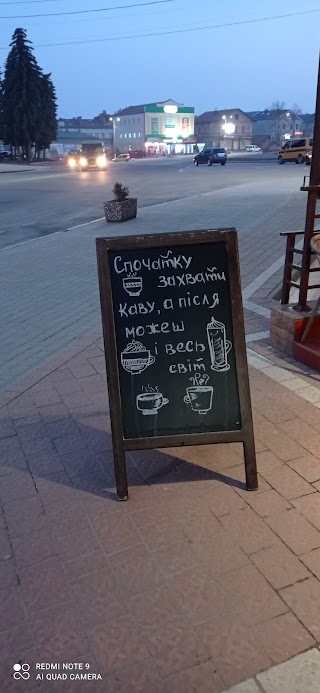 Спочатку
захвати
каву, а після
можеш
і весь
світ
REDMI NOTE 9
AI QUAD CAMERA